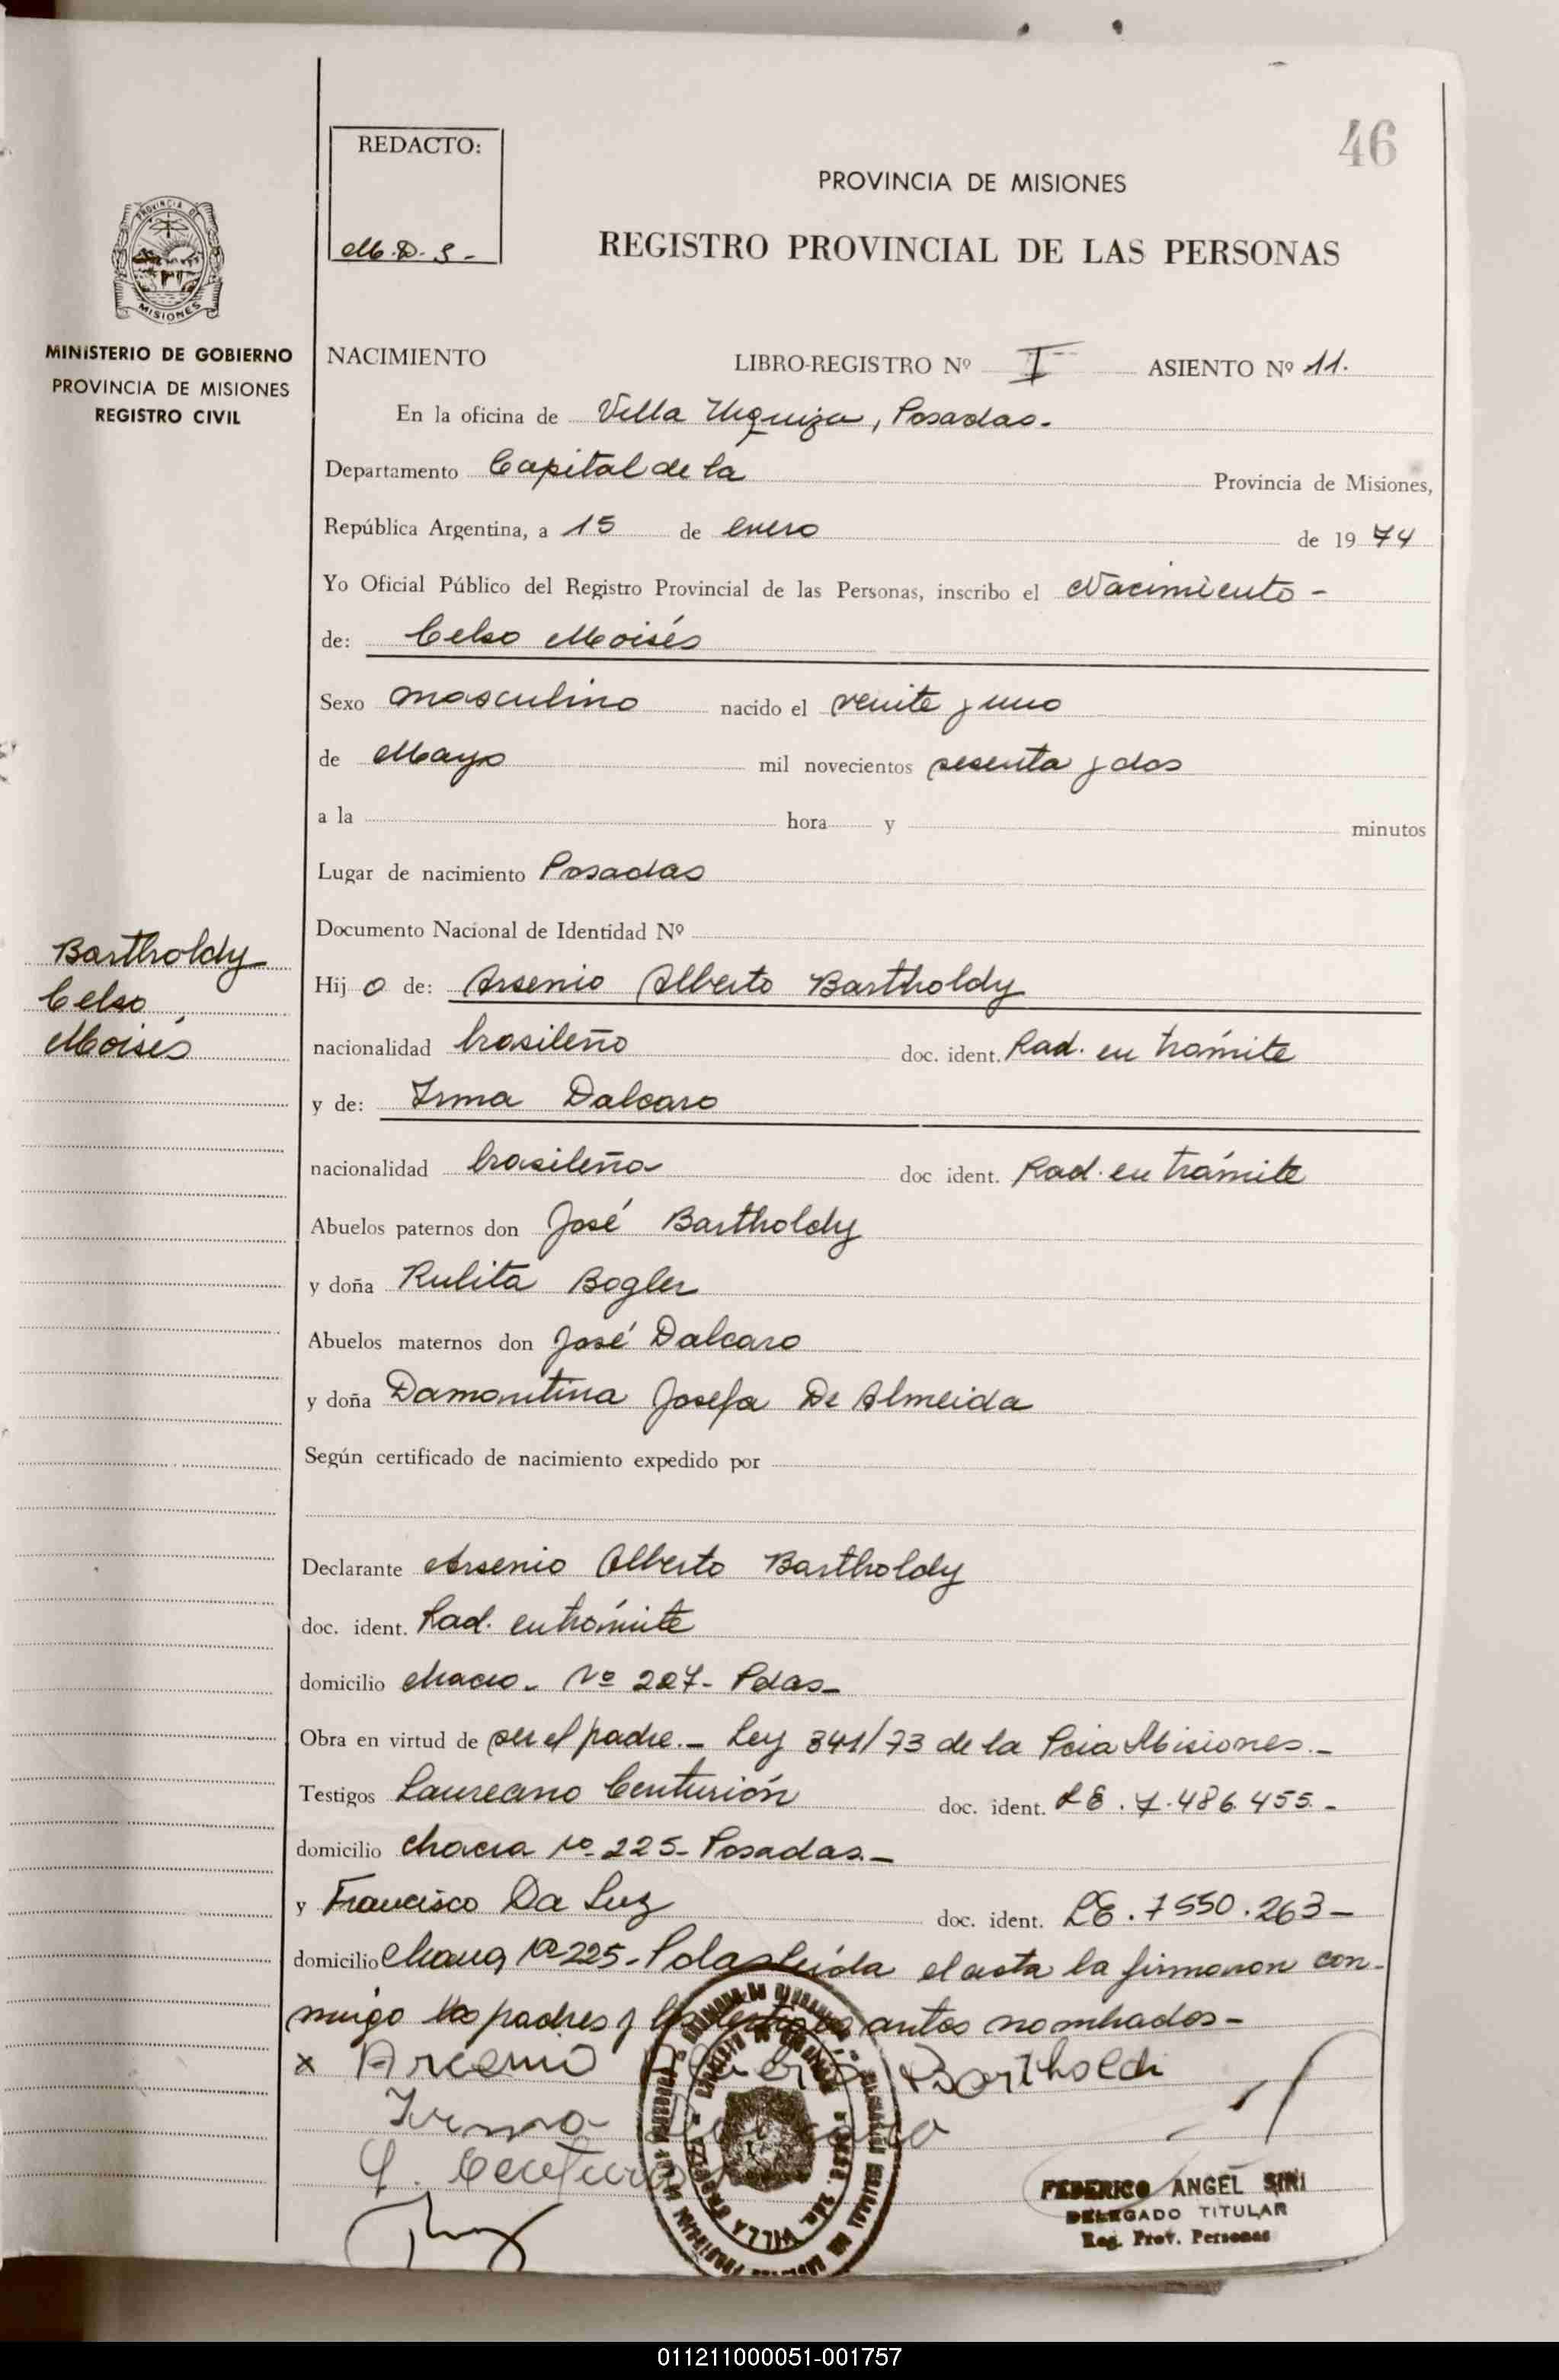 46
REDACTO:
M.D.S-
PROVINCIA DE MISIONES
REGISTRO PROVINCIAL DE LAS PERSONAS
PROVINCIA DE
MISIONES
MINISTERIO DE GOBIERNO
PROVINCIA DE MISIONES
REGISTRO CIVIL
NACIMIENTO LIBRO-REGISTRO Nº I ASIENTO Nº 11.
En la oficina de Villa Urquiza, Posadas.
Departamento Capital de la Provincia de Misiones,
República Argentina, a 15 de enero de 1974
Yo Oficial Público del Registro Provincial de las Personas, inscribo el Nacimiento-
de: Celso Moisés
Sexo masculino nacido el veinte y uno
de Mayo mil novecientos sesenta y dos
a la hora y minutos
Lugar de nacimiento Posadas
Documento Nacional de Identidad Nº
Bartholdy
Celso
Moisés
Hij o de: Arsenio Alberto Bartholdy
nacionalidad brasileño doc. ident. Rad. en trámite
y de: Irma Dalcaro
nacionalidad brasileña doc ident. Rad. en trámite
Abuelos paternos don José Bartholdy
y doña Rulita Bogler
Abuelos maternos don José Dalcaro
y doña Damontina Josefa De Almeida
Según certificado de nacimiento expedido por
Declarante Arsenio Alberto Bartholdy
doc. ident. Rad. en trámite
domicilio chacra. Nº 227- Pdas-
Obra en virtud de ser el padre.- Ley 341/73 de la Pcia Misiones.-
Testigos Laureano Centurión doc. ident. LE. 7.486.455.-
domicilio chacra Nº 225- Posadas.-
y Francisco Da Luz doc. ident. LE. 7550.263-
domicilio chacra Nº 225- Pdas leída el acta la firmaron con-
migo los padres y los testigos antes nombrados-
x Arcenio Alberto Bartholdi
Irma Dalcaro
L. Centurion
FEDERICO ANGEL SIRI
DELEGADO TITULAR
Reg. Prov. Personas
VILLA URQUIZA
011211000051-001757